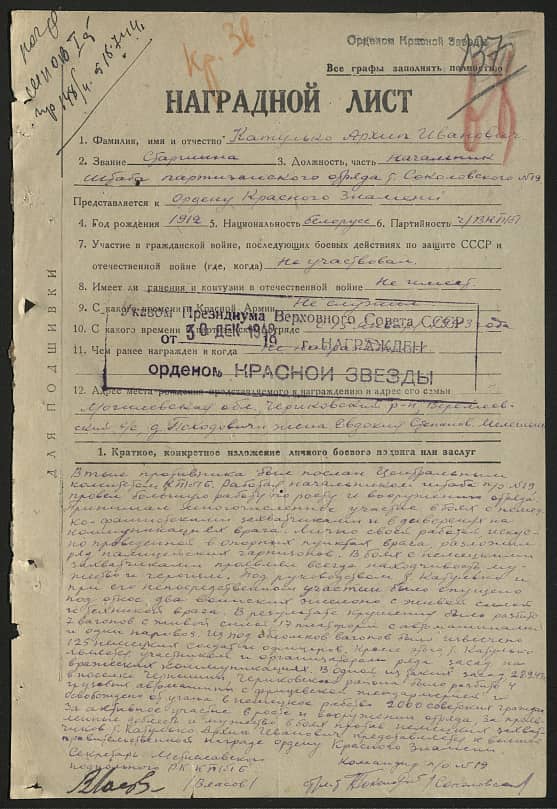 Кр. Зв
Орденом Красной Звезды
137
Все графы заполнять полностью
НАГРАДНОЙ ЛИСТ
1. Фамилия, имя и отчество Катулько Архип Иванович
2. Звание Старшина 3. Должность, часть начальник
штаба партизанского отряда т. Соколовского №19
Представляется к Ордену Красного Знамени
4. Год рождения 1912 5. Национальность белорусс 6. Партийность ч/ВКП/б/
7. Участие в гражданской войне, последующих боевых действиях по защите СССР и
отечественной войне (где, когда) Не участвовал.
8. Имеет ли ранения и контузии в отечественной войне не имеет.
9. С какого времени в Красной Армии Не служил
Указом Президиума Верховного Совета СССР
10. С какого времени в отряде 1943 года
от 30 ДЕК 1948 г. НАГРАЖДЕН
11. Чем ранее награжден и когда не награжден
орденом КРАСНОЙ ЗВЕЗДЫ
12. Адрес места рождения представляемого к награждению и адрес его семьи
Могилевская обл., Чериковский р-н,
с/с д. жена Евдокия
ДЛЯ ПОДШИВКИ
1. Краткое, конкретное изложение личного боевого подвига или заслуг
В тыл противника был послан Центральным
комитетом КП/б/Б. Работая начальником штаба п/о №19
провел большую работу по росту и вооружению отряда.
Принимал многочисленное участие в боях с немец-
ко-фашистскими захватчиками и в диверсиях на
коммуникациях врага. Лично своей работой
в опорных пунктах врага, разложил
ряд гарнизонов. В боях с немецкими
захватчиками проявлял всегда находчивость, му-
жество и героизм. Под руководством т. Катулько и
при его непосредственном участии было спущено
под откос два воинских эшелона с живой силой
и техникой врага. В результате крушения было разбито
7 вагонов с живой силой 17 платформ с автомашинами
и один паровоз. Из под обломков вагонов было извлечено
125 немецких солдат и офицеров. Кроме этого т. Катулько
являлся участником и организатором ряда засад на
вражеских коммуникациях. В одной из таких засад
в поселке Чериковского района было разбито 4
грузовых автомашины с
освобождено от угона в немецкое рабство 2000 советских граждан
За активное участие в росте и вооружении отряда, за прояв-
ленные доблесть и мужество в боях против немецких захват-
чиков т. Катулько Архип Иванович представляется к высшей
правительственной награде ордену Красного Знамени.
Секретарь
подпольного РК КП/б/Б
/Власов/
Командир п/о №19
/Соколовский/